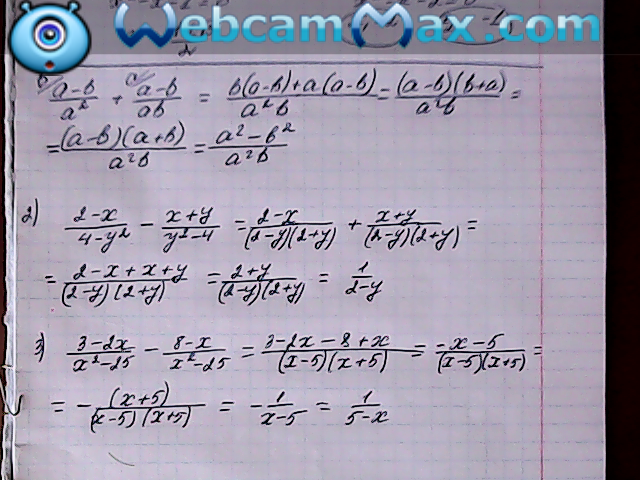 WebcamMax.com
b a-b/a² + a a-b/ab = b(a-b)+a(a-b)/a²b = (a-b)(b+a)/a²b =
= (a-b)(a+b)/a²b = a²-b²/a²b
2) 2-x/4-y² - x+y/y²-4 = 2-x/(2-y)(2+y) + x+y/(2-y)(2+y) =
= 2-x+x+y/(2-y)(2+y) = 2+y/(2-y)(2+y) = 1/2-y
3) 3-2x/x²-25 - 8-x/x²-25 = 3-2x-8+x/(x-5)(x+5) = -x-5/(x-5)(x+5) =
= -(x+5)/(x-5)(x+5) = -1/x-5 = 1/5-x